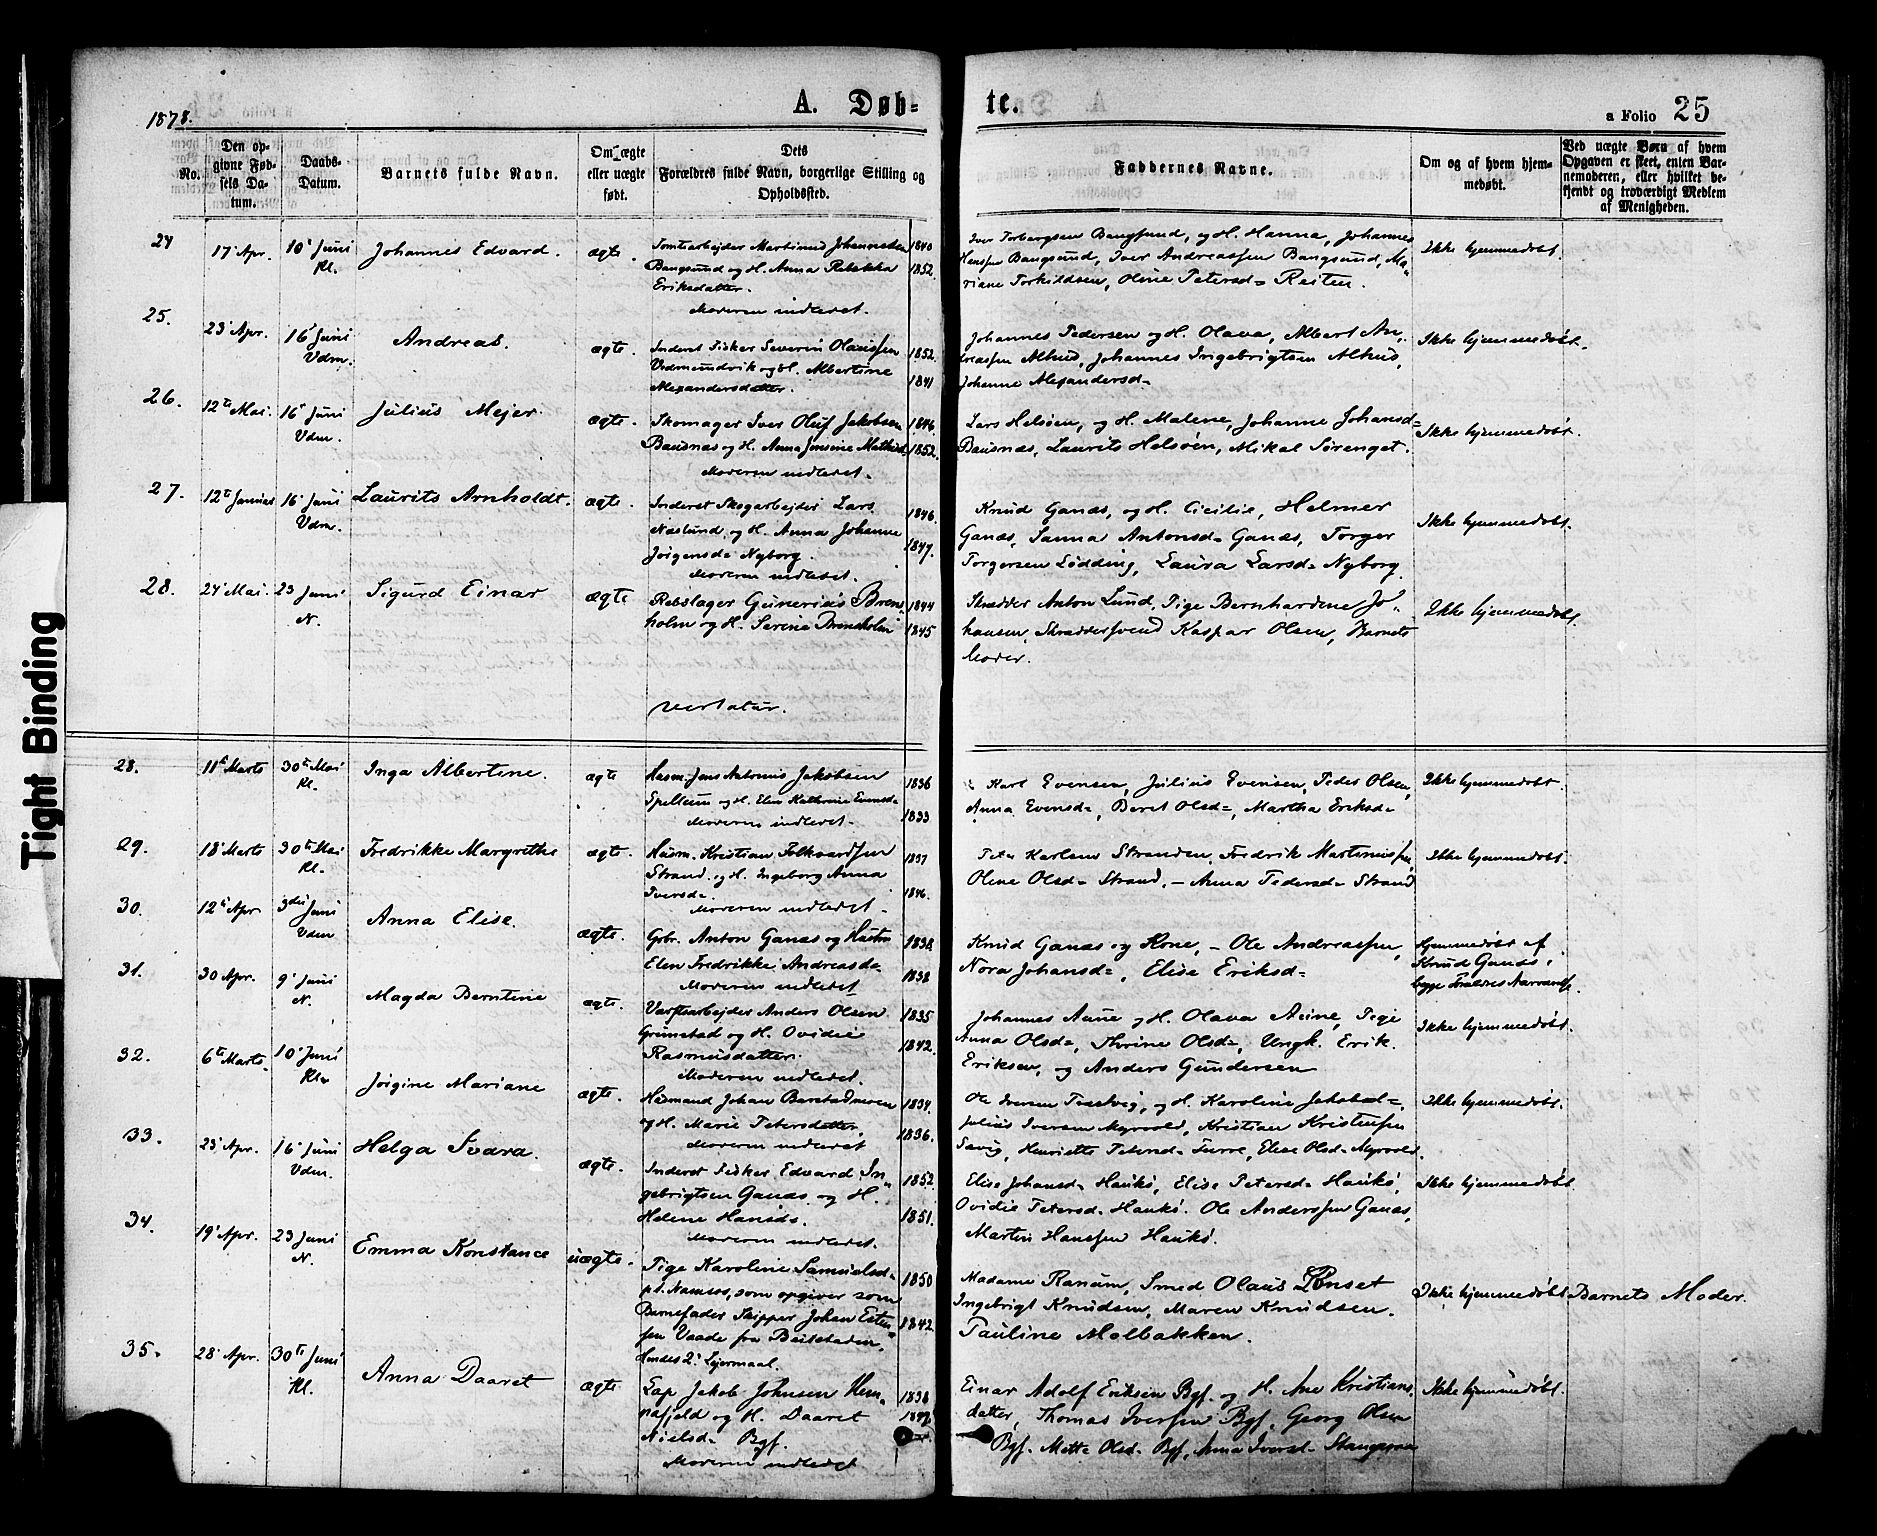 1878.
A. Døb-
te.
a Folio 25
No.
Den op-
givne Fød-
sels Da-
tum.
Daabs-
Datum.
Barnets fulde Navn.
Om ægte
eller uægte
født.
Dets
Forældres fulde Navn, borgerlige Stilling og
Opholdssted.
Faddernes Navne.
Om og af hvem hjem-
medøbt.
Ved uægte Børn af hvem
Opgaven er skeet, enten Bar-
nemoderen, eller hvilket be-
kjendt og troværdigt Medlem
af Menigheden.
24 17 Apr. 10 Juni Kl. Johannes Edvard. ægte.
Tomtearbejder Martinus Johannesen 1840
Bangsund og H. Anna Rebekka 1852.
Eriksdatter.
Moderen indledet.
Iver Torbergsen Bangsund, og H. Hanna, Johannes
Hanssen Bangsund, Iver Andreassen Bangsund, Ma-
riane Torkildsen, Oline Petersd= Reiten.
Ikke hjemmedøbt.
25. 23 Apr. 16 Juni Vdm. Andreas. ægte.
Inderst Fisker Severin Olaussen 1852.
Vedmundvik og H. Albertine 1841
Alexandersdatter.
Johannes Pedersen og H. Olava, Albert An-
dreassen Althus, Johannes Ingebrigtsen Althus,
Johanne Alexandersd=
Ikke hjemmedøbt.
26. 12te Mai. 16 Juni Vdm. Julius Mejer. ægte.
Skomager Iver Oluf Jakobsen 1846.
Bausnæs og H. Anna Jensine Mathisd. 1852.
Moderen indledet.
Lars Helsøen, og H. Malene, Johanne Johansd=
Bausnæs, Laurits Helsøen, Mikal Sørenget.
Ikke hjemmedøbt.
27. 12te Januar 16 Juni Vdm. Laurits Arnholdt. ægte.
Inderst Skogarbejder Lars 1846.
Næslund og H. Anna Johanne 1847.
Jørgensd= Nyborg.
Moderen indledet.
Knud Ganæs, og H. Cicilie, Helmer
Ganæs, Sanna Antonsd= Ganæs, Torger
Torgersen Lødding, Laura Larsd= Nyborg
Ikke hjemmedøbt.
28. 24 Mai. 23 Juni N. Sigurd Einar ægte
Rebslager Gunerius Brens- 1844
holm og H. Serine Brensholm 1845
Skrædder Anton Lund, Pige Bernhardine Jo-
hansen, Skræddersvend Kaspar Olsen, Barnets
Moder.
Ikke hjemmedøbt.
Vertatur.
28. 11te Marts 30te Mai Kl. Inga Albertine. ægte
Husm. Jens Antonius Jakobsen 1836
Spillum og H. Elen Kathrine Evensd= 1833
Moderen indledet.
Karl Evensen, Julius Evensen, Peder Olsen,
Anna Evensd=, Beret Olsd=, Martha Eriksd=
Ikke hjemmedøbt.
29. 18 Marts 30te Mai Kl. Fredrikke Margrethe ægte.
Husm. Kristian Folkvardsen 1837
Strand og H. Ingeborg Anna 1846.
Iversd=
Moderen indledet.
Peter Karlsen Stranden, Fredrik Martinussen,
Oline Olsd= Strand. — Anna Pedersd= Strand
Ikke hjemmedøbt.
30. 12te Apr 3die Juni Vdm Anna Elise. ægte.
Gbr. Anton Ganæs og Hustru 1838
Elen Fredrikke Andreasd= 1838
Moderen indledet
Knud Ganæs og Kone, — Ole Andreassen,
Nora Johansd=, Elise Eriksd=
Hjemmedøbt af
Knud Ganæs i
begge Foreldres Nærværelse.
31. 30 Apr. 9 Juni N. Magda Berntine ægte.
Værftsarbejder Anders Olsen 1835
Grimstad og H. Ovidie 1842.
Rasmusdatter.
Moderen indledet.
Johannes Aune og H. Olava Aune, Pige
Anna Olsd=, Thrine Olsd=, Ungk. Erik
Eriksen, og Anders Gundersen
Ikke hjemmedøbt.
32. 6te Marts 10 Juni Kl. Jørgine Mariane ægte.
Husmand Johan Barstadmoen 1834.
og H. Marie Petersdatter, 1836.
Moderen indledet
Ole Iversen Tvedvig, og H. Karoline Jakobsd=,
Julius Iversen Myrvold, Kristian Kristensen
Sævig, Henriette Petersd= Furre, Elise Olsd= Myrvold.
Ikke hjemmedøbt.
33. 23 Apr. 16 Juni Vdm. Helga Svara. ægte.
Inderst Fisker Edvard In- 1852
gebrigtsen Ganæs og H. 1851.
Helene Hansd=.
Moderen indledet.
Elise Johansd= Haukø, Elise Petersd= Haukø,
Ovidie Petersd= Haukø. Ole Anderssen Ganæs,
Martin Hanssen Haukø.
Ikke hjemmedøbt.
34. 19 Apr. 23 Juni N. Emma Konstance uægte.
Pige Karoline Samuelsd= 1850
pt. Namsos, som opgiver som
Barnefader Skipper Johan Esten- 1842.
sen Vaade fra Beitstaden.
Hendes 2. Lejermaal.
Madame Ranum, Smed Olaus Lønset
Ingebrigt Knudsen, Maren Knudsen.
Pauline Molbakken.
Ikke hjemmedøbt
Barnets Moder.
35. 28 Apr. 30te Juni Kl. Anna Daaret ægte
Lap Jakob Johnsen Hem- 1838
nafjeld og H. Daaret 1842
Nielsd= Bgf.
Moderen indledet
Einar Adolf Eriksen Bgf. og H. Ane Kristians-
datter, Thomas Iversen Bgf, Georg Olsen
Bgf. Mette Olsd= Bgf, Anna Iversd=
Ikke hjemmedøbt.
Tight Binding